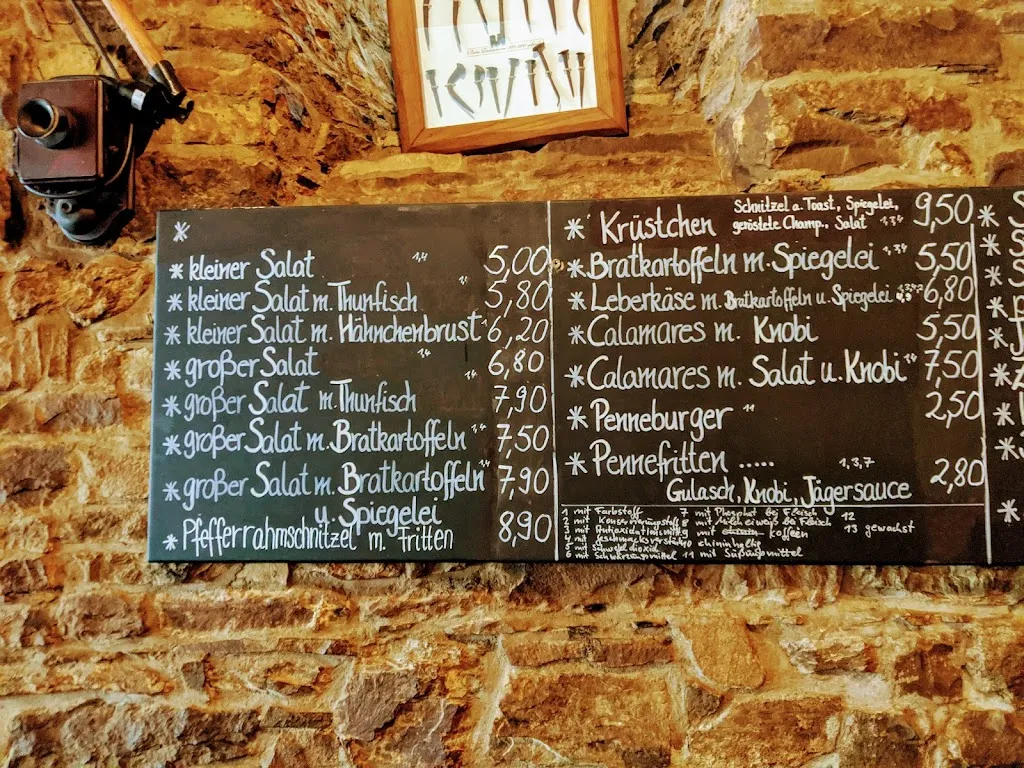 *
* kleiner Salat 1,4 5,00
* kleiner Salat m. Thunfisch 5,80
* kleiner Salat m. Hähnchenbrust 6,20
* großer Salat 1,4 6,80
* großer Salat m. Thunfisch 1,4 7,90
* großer Salat m. Bratkartoffeln 1,4 7,50
* großer Salat m. Bratkartoffeln 1,4 7,90
u. Spiegelei
* Pfefferrahmschnitzel m. Fritten 8,90
* Krüstchen Schnitzel a. Toast, Spiegelei, 9,50
geröstete Champ., Salat 1,3,4
* Bratkartoffeln m. Spiegelei 1,3,4 5,50
* Leberkäse m. Bratkartoffeln u. Spiegelei 6,80
* Calamares m. Knobi 5,50
* Calamares m. Salat u. Knobi 1,4 7,50
* Penneburger 2,50
* Pennefritten ..... 1,3,7 2,80
Gulasch, Knobi, Jägersauce
1 mit Farbstoff 7 mit Phosphat bei Fleisch 12
2 mit Konservierungstoff 8 mit Milcheiweiß bei Fleisch 13 gewachst
3 mit Antioxidationsmittel 9 mit koffeen
4 mit Geschmacksverstärker 10 chininhaltig
5 mit Schwefeldioxid
6 mit Schwärzungsmittel 11 mit Süßungsmittel